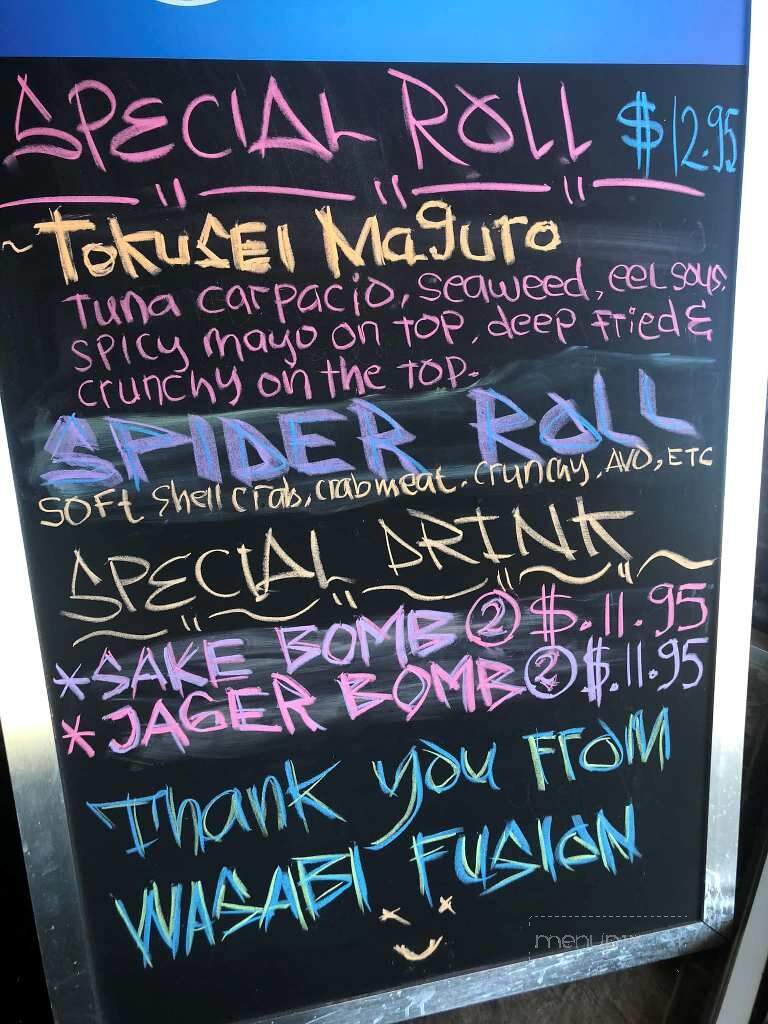 SPECIAL ROLL $12.95
~TOKUSEI Maguro
Tuna carpacio, seaweed, eel sous,
spicy mayo on top, deep fried &
crunchy on the top.
SPIDER ROLL
SOFT Shell crab, crabmeat, crunchy, AVO, ETC
SPECIAL DRINK
*SAKE BOMB ② $.11.95
*JAGER BOMB ② $.11.95
Thank you From
WASABI FUSION
menupix